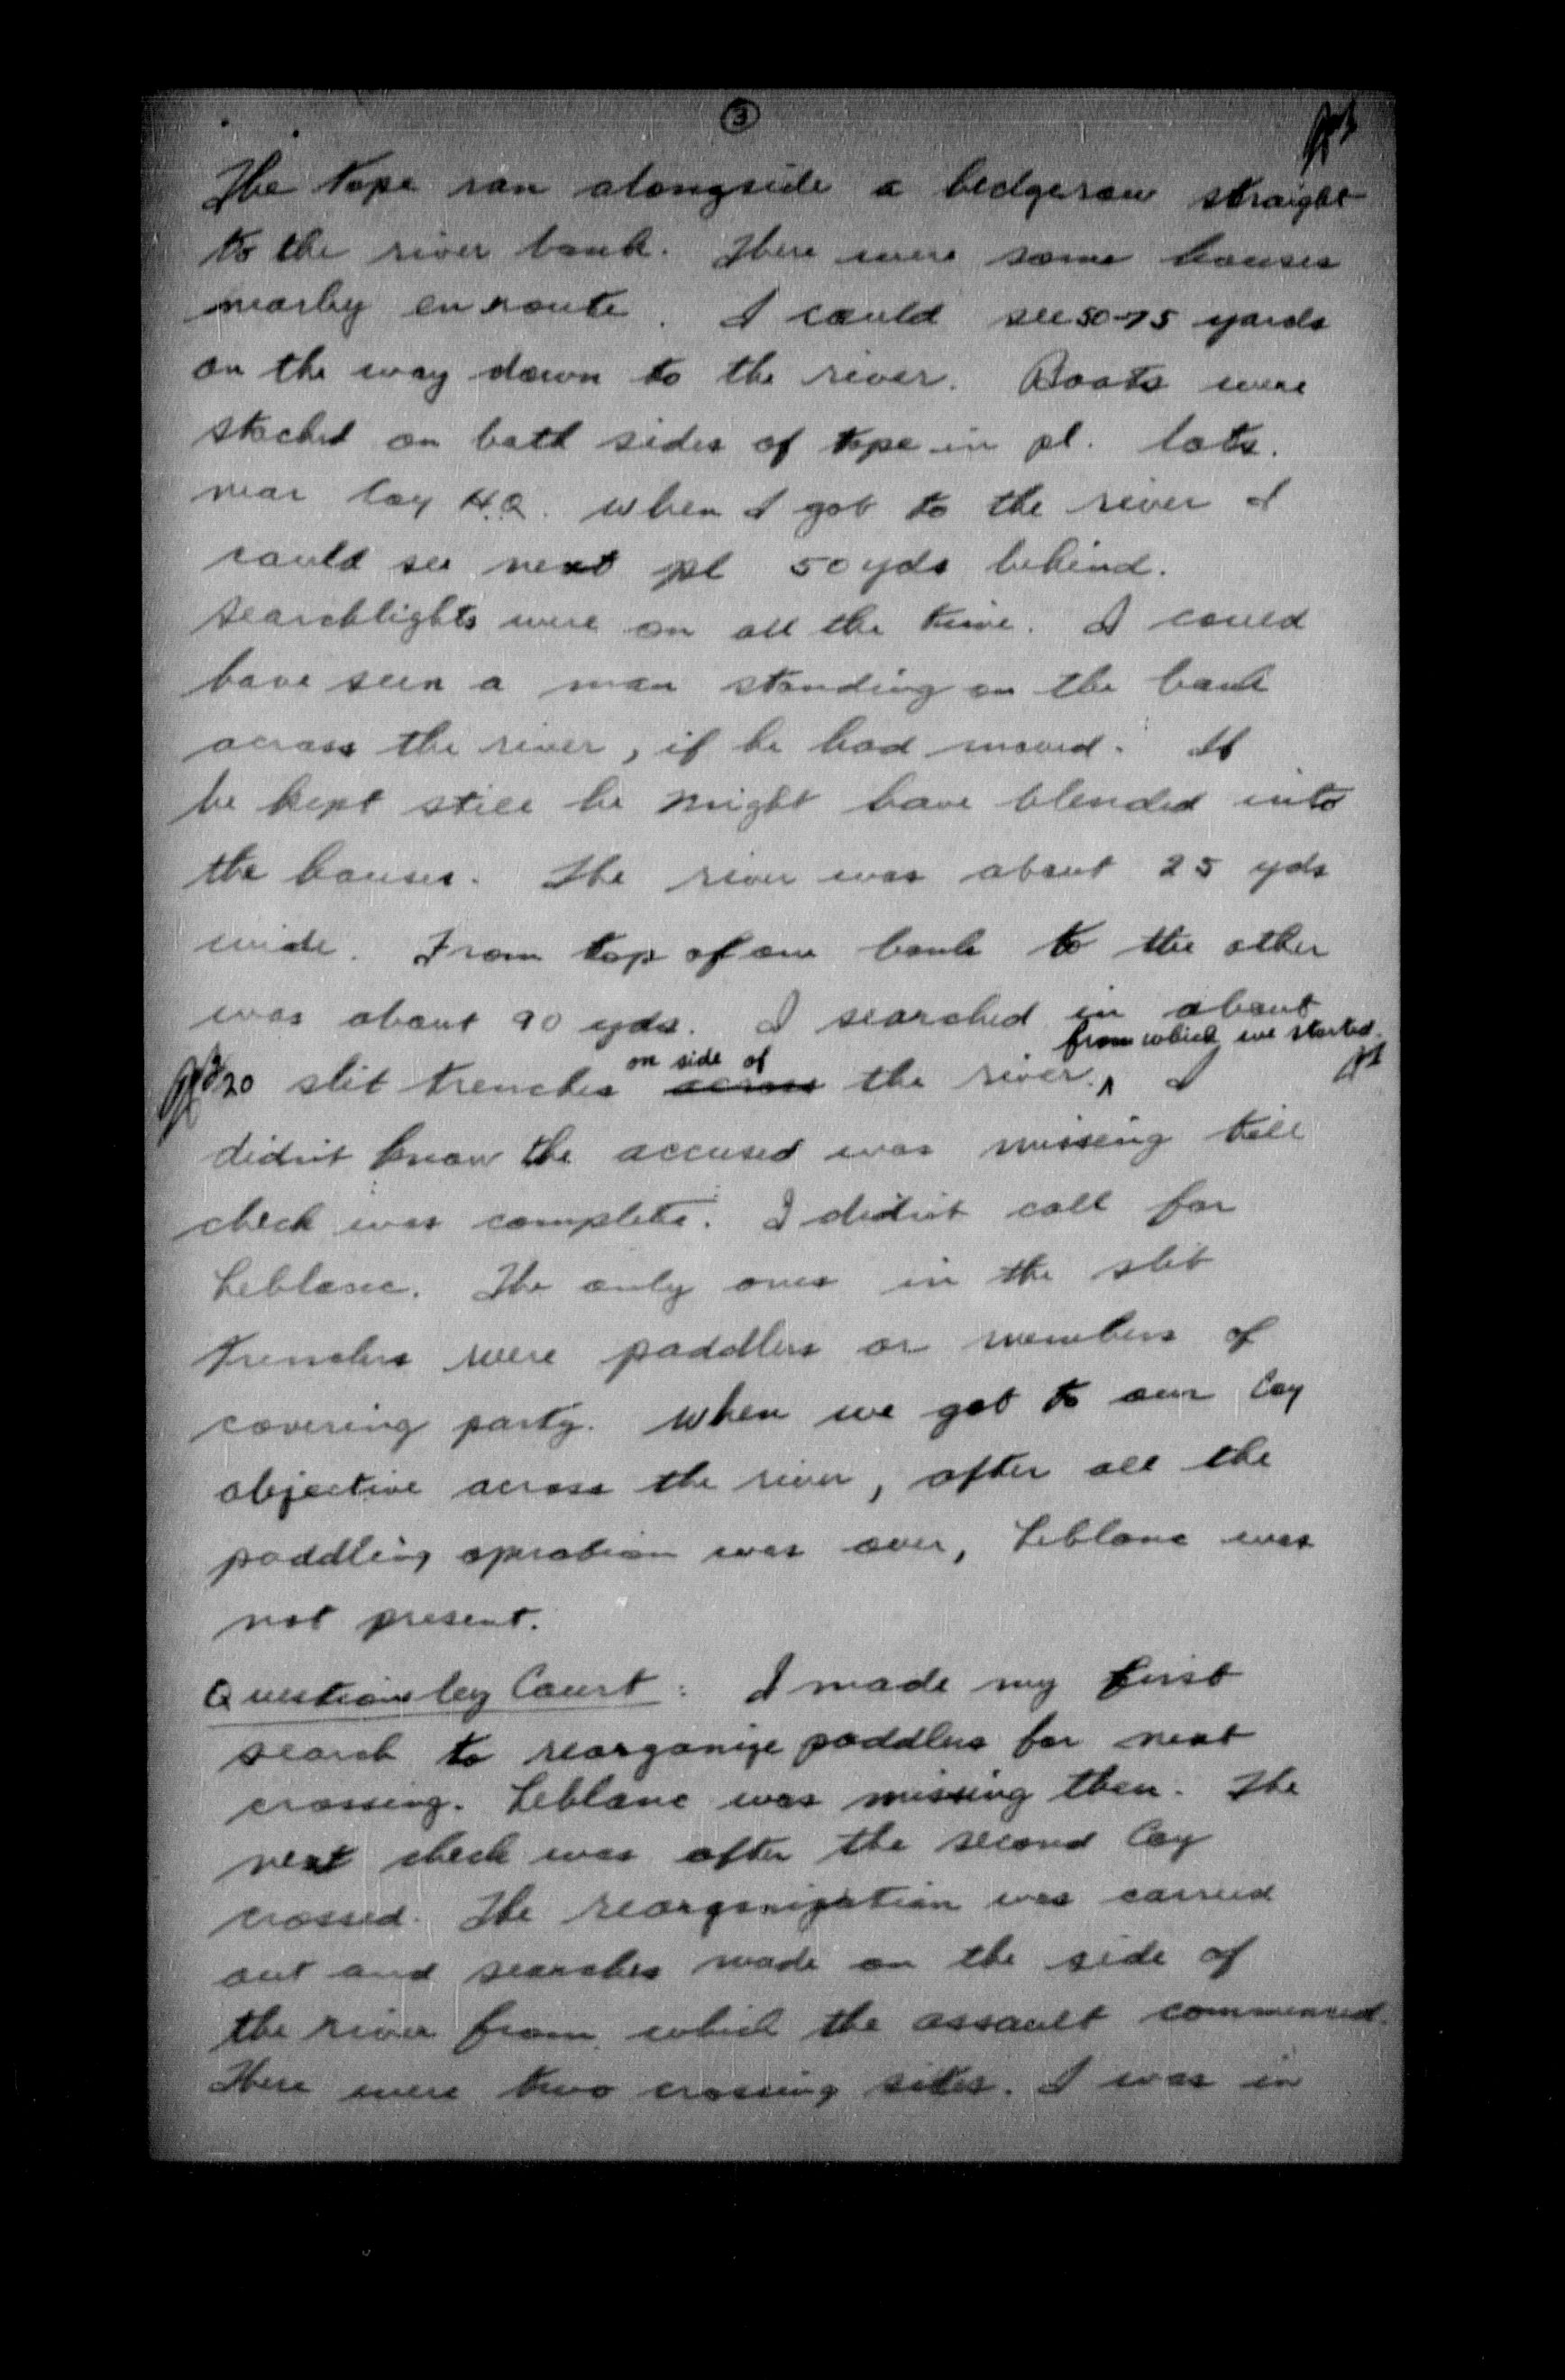 3
The tape ran alongside a hedgerow straight
to the river bank. There were some houses
nearby enroute. I could see 50-75 yards
on the way down to the river. Boats were
stacked on both sides of tape in pl. lots.
near Coy H.Q. When I got to the river I
could see next pl 50 yds behind.
Searchlights were on all the time. I could
have seen a man standing on the bank
across the river, if he had moved. If
he kept still he might have blended into
the houses. The river was about 25 yds
wide. From top of one bank to the other
was about 90 yds. I searched in about
on side of from which we started.
20 slit trenches across the river. I
didn't know the accused was missing till
check was complete. I didn't call for
Leblanc. The only ones in the slit
trenches were paddlers or members of
covering party. When we got to our Coy
objective across the river, after all the
paddling operation was over, Leblanc was
not present.
Questions by Court: I made my first
search to reorganize paddlers for next
crossing. Leblanc was missing then. The
next check was after the second Coy
crossed. The reorganization was carried
out and searches made on the side of
the river from which the assault commenced.
There were two crossing sites. I was in